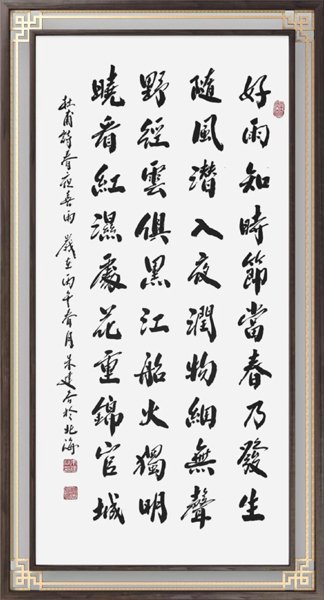 好雨知時節當春乃發生
隨風潛入夜潤物細無聲
野徑雲俱黑江船火獨明
曉看紅濕處花重錦官城
杜甫詩春夜喜雨 歲在丙午春月朱建 於北海